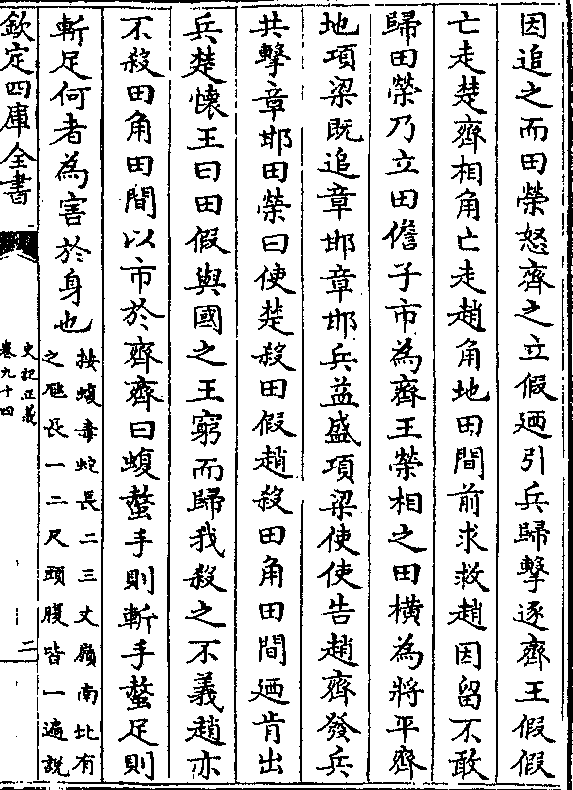 因追之而田榮怒齊之立假廼引兵歸擊逐齊王假假
亡走楚齊相角亡走趙角地田間前求救趙因留不敢
歸田榮乃立田儋子市為齊王榮相之田橫為將平齊
地項梁既追章邯章邯兵益盛項梁使使告趙齊發兵
共擊章邯田榮曰使楚殺田假趙殺田角田間廼肯出
兵楚懷王曰田假與國之王窮而歸我殺之不義趙亦
不殺田角田間以市於齊齊曰蝮螫手則斬手螫足則
斬足何者為害於身也
按蝮毒蛇長二三丈嶺南北有
之虺長一二尺頭腹皆一遍說
欽定四庫全書
史記正義
卷九十四
二